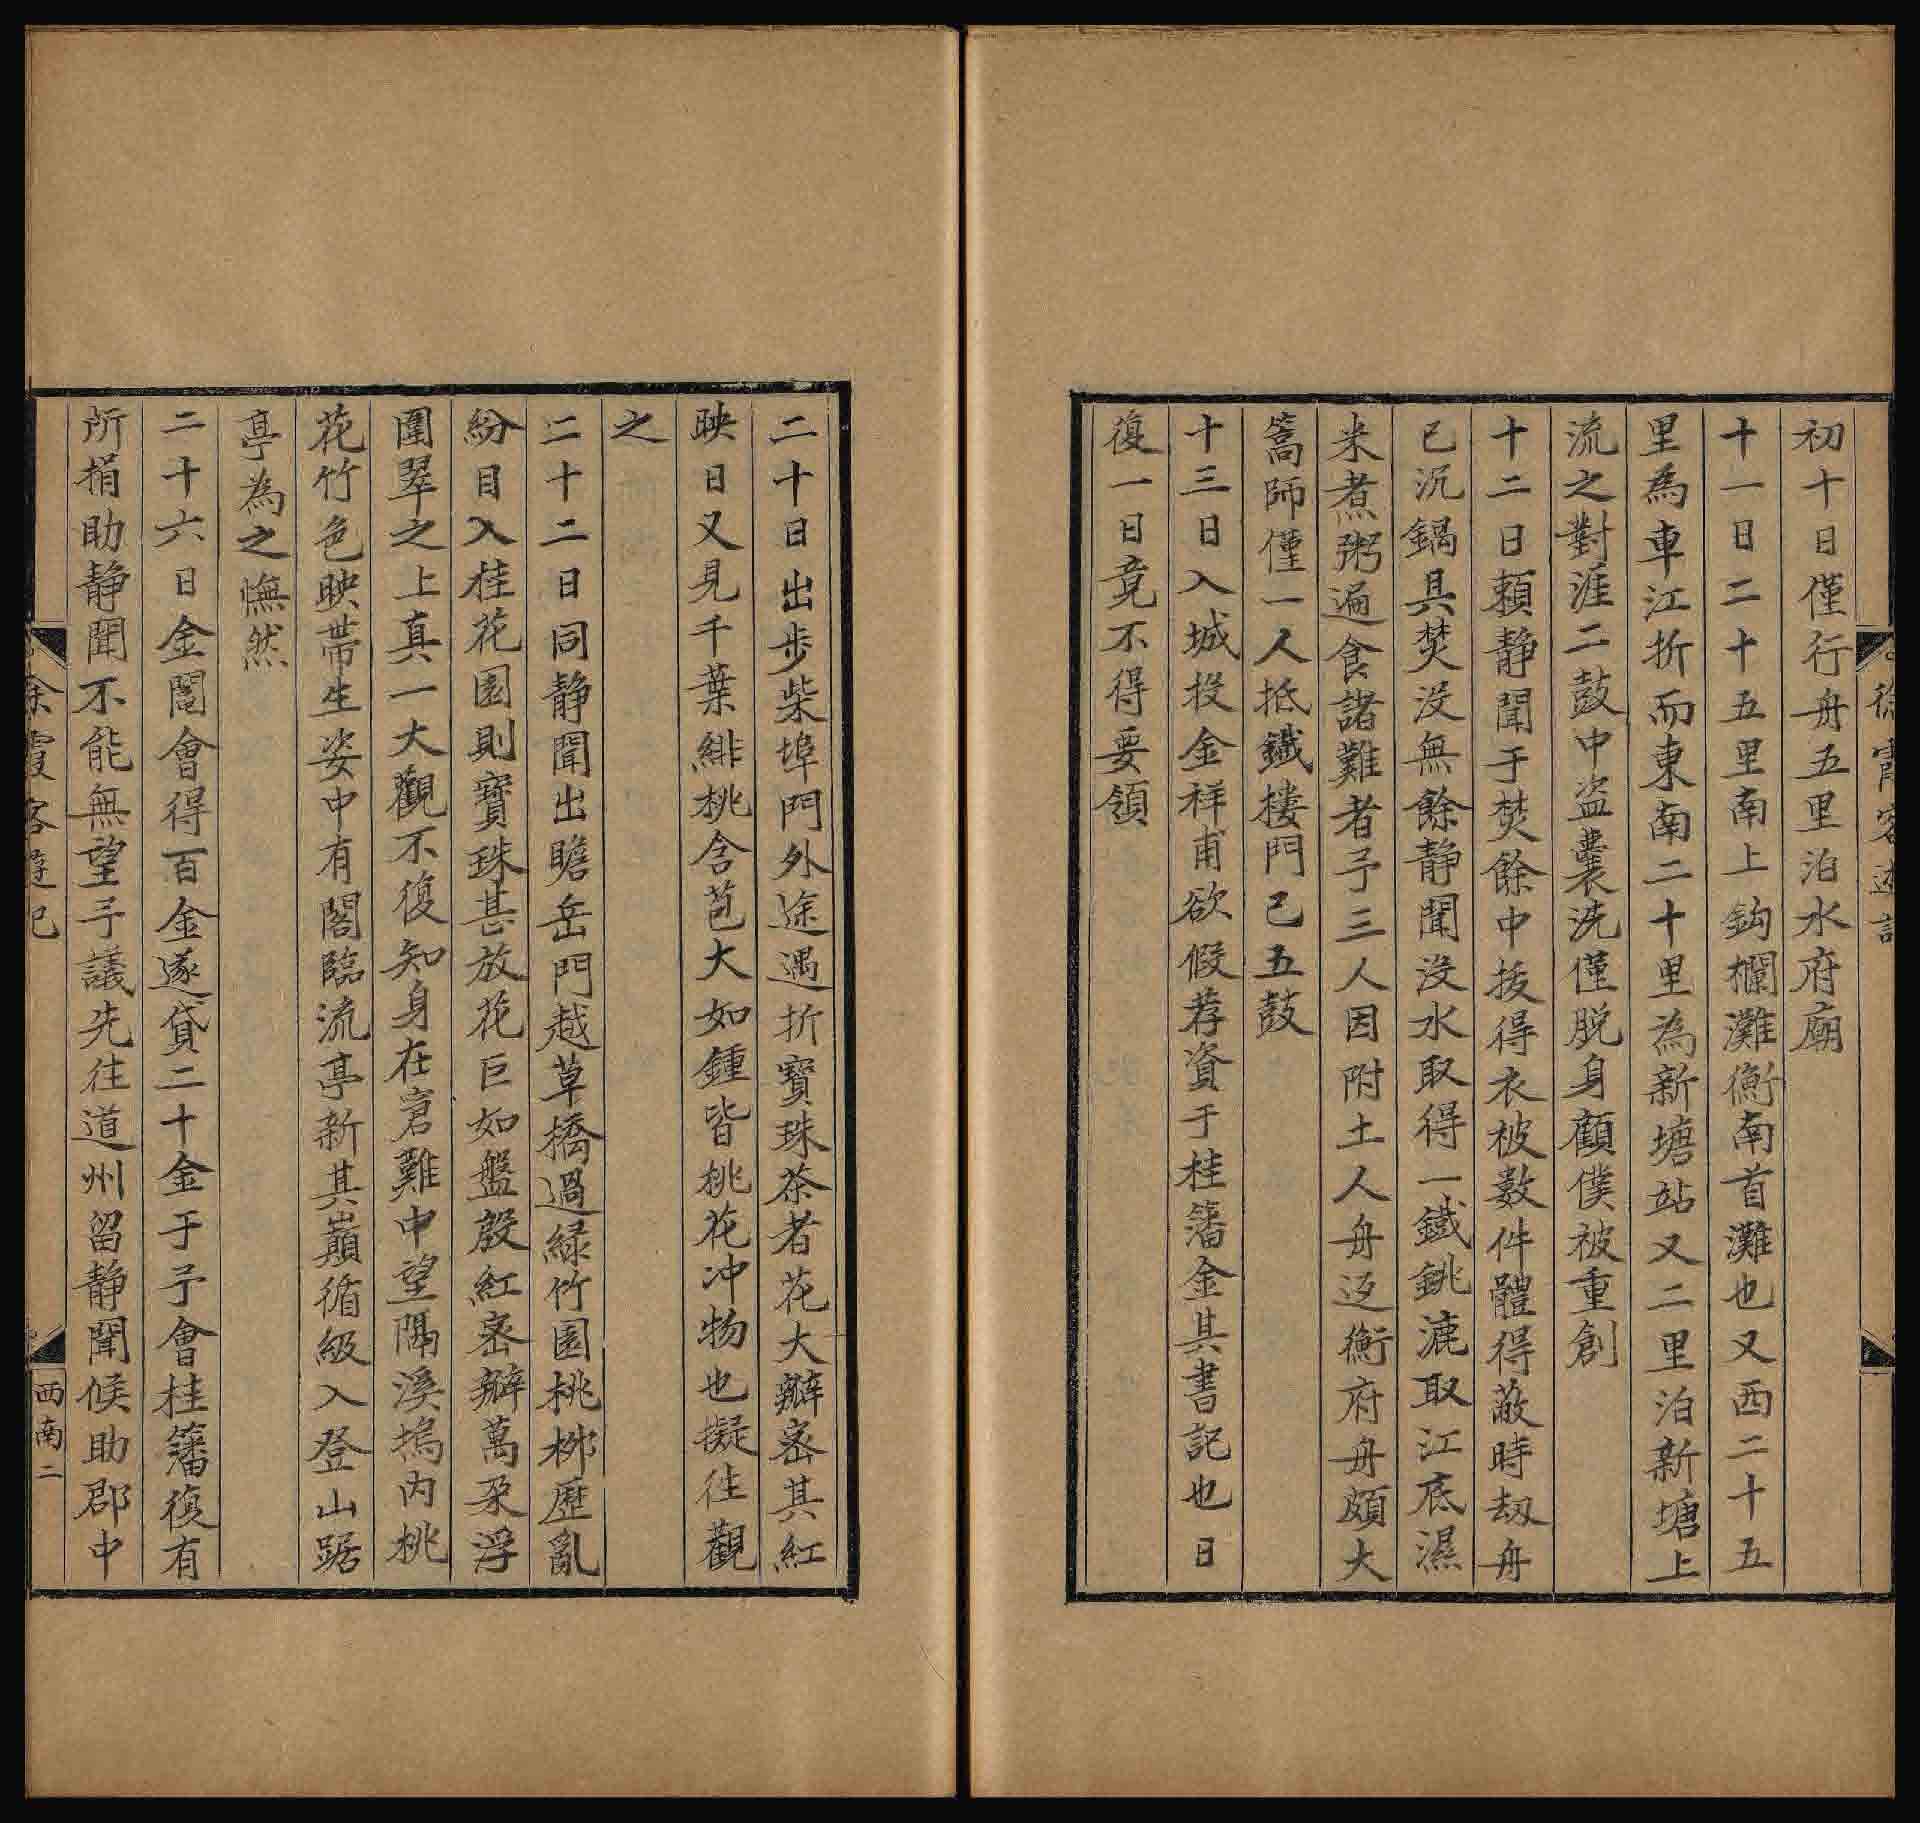 徐霞客遊記
初十日僅行舟五里泊水府廟
十一日二十五里南上鈎欄灘衡南首灘也又西二十五
里為車江折而東南二十里為新塘站又二里泊新塘上
流之對涯二鼓中盜囊洗僅脫身顧僕被重創
十二日賴靜聞于焚餘中拔得衣被數件體得蔽時刼舟
已沉鍋具焚沒無餘靜聞沒水取得一鐵銚漉取江底濕
米煮粥遍食諸難者予三人因附土人舟返衡府舟頗大
篙師僅一人抵鐵樓門已五鼓
十三日入城投金祥甫欲假荐資于桂藩金其書記也日
復一日竟不得要領
二十日出步柴埠門外途遇折寶珠茶者花大瓣密其紅
映日又見千葉緋桃含苞大如鍾皆桃花冲物也擬往觀
之
二十二日同靜聞出瞻岳門越草橋過緑竹園桃栁歷亂
紛目入桂花園則寶珠甚放花巨如盤殷紅密瓣萬朶浮
團翠之上真一大觀不復知身在窘難中望隔溪塢內桃
花竹色映帶生姿中有閣臨流亭新其巔循級入登山踞
亭為之憮然
二十六日金闇會得百金遂貸二十金于予會桂藩復有
所捐助靜聞不能無望予議先往道州留靜聞候助郡中
徐霞客遊記
西南二